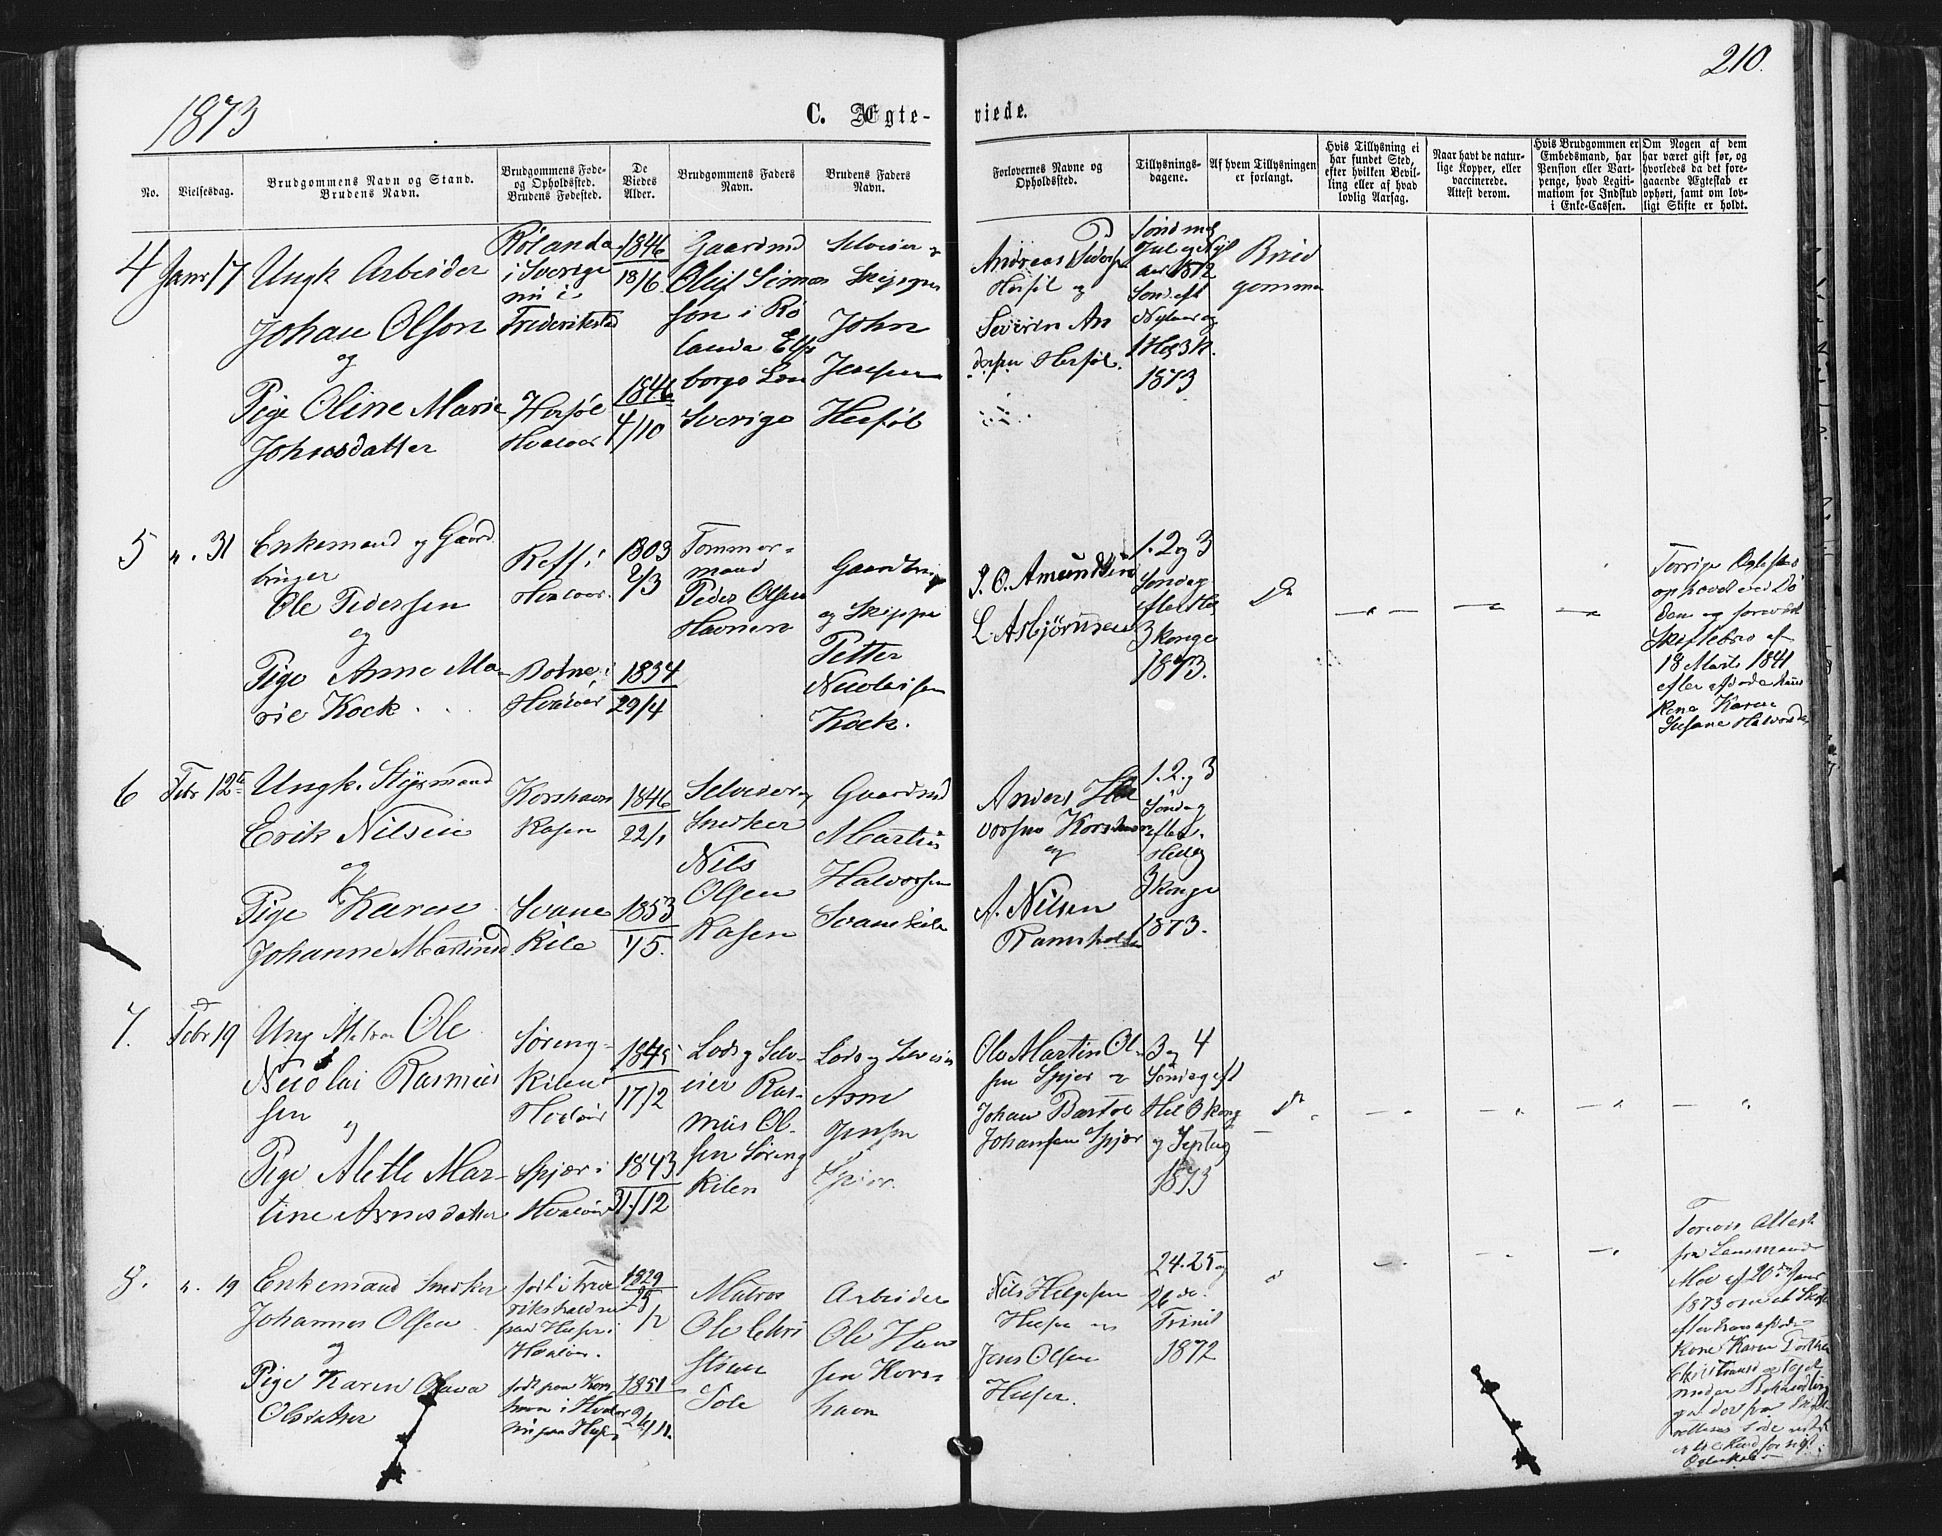 1873
210.
C. Ægte-
viede.
No.
Vielsesdag.
Brudgommens Navn og Stand.
Brudens Navn.
Brudgommens Føde-
og Opholdssted.
Brudens Fødested.
De
Viedes
Alder.
Brudgommens Faders
Navn.
Brudens Faders
Navn.
Forlovernes Navne og
Opholdssted.
Tillysnings-
dagene.
Af hvem Tillysningen
er forlangt.
Hvis Tillysning ei
har fundet Sted,
efter hvilken Bevil-
ling eller af hvad
lovlig Aarsag.
Naar havt de natur-
lige Kopper, eller
vaccinerede.
Attest derom.
Hvis Brudgommen er
Embedsmand, har
Pension eller Vart-
penge, hvad Legiti-
mation for Indskud
i Enke-Cassen.
Om Nogen af dem
har været gift før, og
hvorledes da det fore-
gaaende Ægteskab er
ophørt, samt om lov-
ligt Skifte er holdt.
4
Janr 17
Ungk Arbeider
Johan Olson
og
Pige Oline Marie
Johnsdatter
Rölanda
i Sverige
nu i
Frederikstad
Herföl
Hvaløer
1846
18/6
1846
4/10
Gaardmd
Oluf Simon
son i Rö
landa Elfs
borgs Län
Sverige
Selveier og
Skipper
John
Jensen
Herföl
Andreas Peders
Herföl og
Severin An
dersen Herföl.
Sønd mel
Jul og Nyt
aar 1872
Sønd eft
Nytaar og
1 Hel 3 K.
1873
Brud
gommen
5
". 31
Enkemand og Gaard
bruger
Ole Pedersen
og
Pige Anne Ma-
rie Kock
Reff i
Hvaløer.
Botne i
Hvaløer
1803
2/3
1834
29/4
Tømmer-
mand
Peder Olsen
Havnen
Gaardbruger
og Skipper
Petter
Nicolaisen
Kock.
P. O. Amundsen
L Asbjörnsen
1. 2 og 3
Søndag
efter Hel
3 konge
1873.
Do
Forrige Ægteskab
ophævet ved Dø
den og forevist
Skiftebrev af
18 Marts 1841
efter afdøde Hans
Kone Karen
6
Febr 12te
Ungk. Styrmand
Erik Nilsen
og
Pige Karen
Johanne Martinsd
Korshavn
Kasen
Svane
Kile
1846
22/1
1853
1/5.
Selveier og
Snedker
Nils
Olsen
Kasen
Gaardmd
Martin
Halvorsen
Svanekile
Anders Hal
vorsen Korshavn
og
A. Nilsen
Ramsholdt
1. 2 og 3
Søndag
efter
Hellig
3 konge
1873.
7.
Febr 19
Ung Matros Ole
Nicolai Rasmus
sen og
Pige Alette Mar-
tine Arnesdatter
Søreng-
kilen i
Hvaløer
Spjær i
Hvaløer
1845
17/2
1843
31/12
Lods og Selv-
eier Ras-
mus Ol-
sen Søreng
kilen
Lods og Selveier
Arne
Jensen
Spjær.
Ole Martin Ol-
sen Spjær og
Johan Bartol
Johansen Spjær
3 og 4
Søndag eft
Hel 3 kong
og Septug
1873
Do
8.
". 19
Enkemand Snedker
Johannes Olsen
og
Pige Karen Olava
Olsdatter
født i Fred
rikshald nu
paa Huser i
Hvaløer.
født paa Kors
havn i Hvaler
nu paa Huser
1829
25/2
1851
26/11.
Matros
Ole Chri
stian
Tole
Arbeider
Ole Han
sen Kors-
havn
Nils Helgesen
Huser og
Jens Olsen
Huser.
24. 25 og
26 de.
Trinit
1872
Forevis Attest
fra Lensmand
Moe af 20de Janr
1873 om at Skifte
efter hans afdøde
Kone Karen